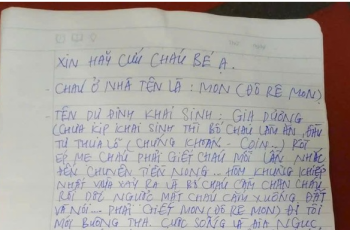 XIN HÃY CỨU CHÁU BÉ Ạ.
- CHÁU Ở NHÀ TÊN LÀ : MON (ĐÔ RÊ MON)
- TÊN DỰ ĐỊNH KHAI SINH : GIA DƯƠNG
(CHƯA KỊP KHAI SINH THÌ BỐ CHÁU LÀM ĂN, ĐẦU
TƯ THUA LỖ (CHỨNG KHOÁN - COIN...) RỒI
ÉP MẸ CHÁU PHẢI GIẾT CHÁU MỖI LẦN NHẮC
ĐẾN CHUYỆN TIỀN NONG... HÔM KHỦNG KHIẾP
NHẤT VỪA XẢY RA LÀ BỐ CHÁU CẦM CHÂN CHÁU
RỒI DỐC NGƯỢC MẶT CHÁU CẮM XUỐNG ĐẤT
VÀ NÓI... PHẢI GIẾT MON (ĐÔ RÊ MON) ĐI TÔI
MỚI BUÔNG THA. CUỘC SỐNG LÀ ĐỊA NGỤC